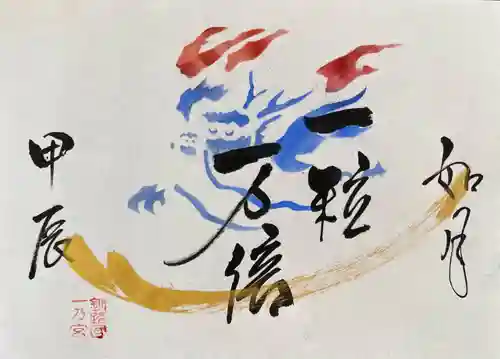 如月
一粒
万倍
甲辰
一乃宮